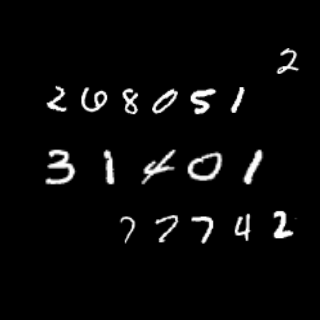 2
268051
31401
77742